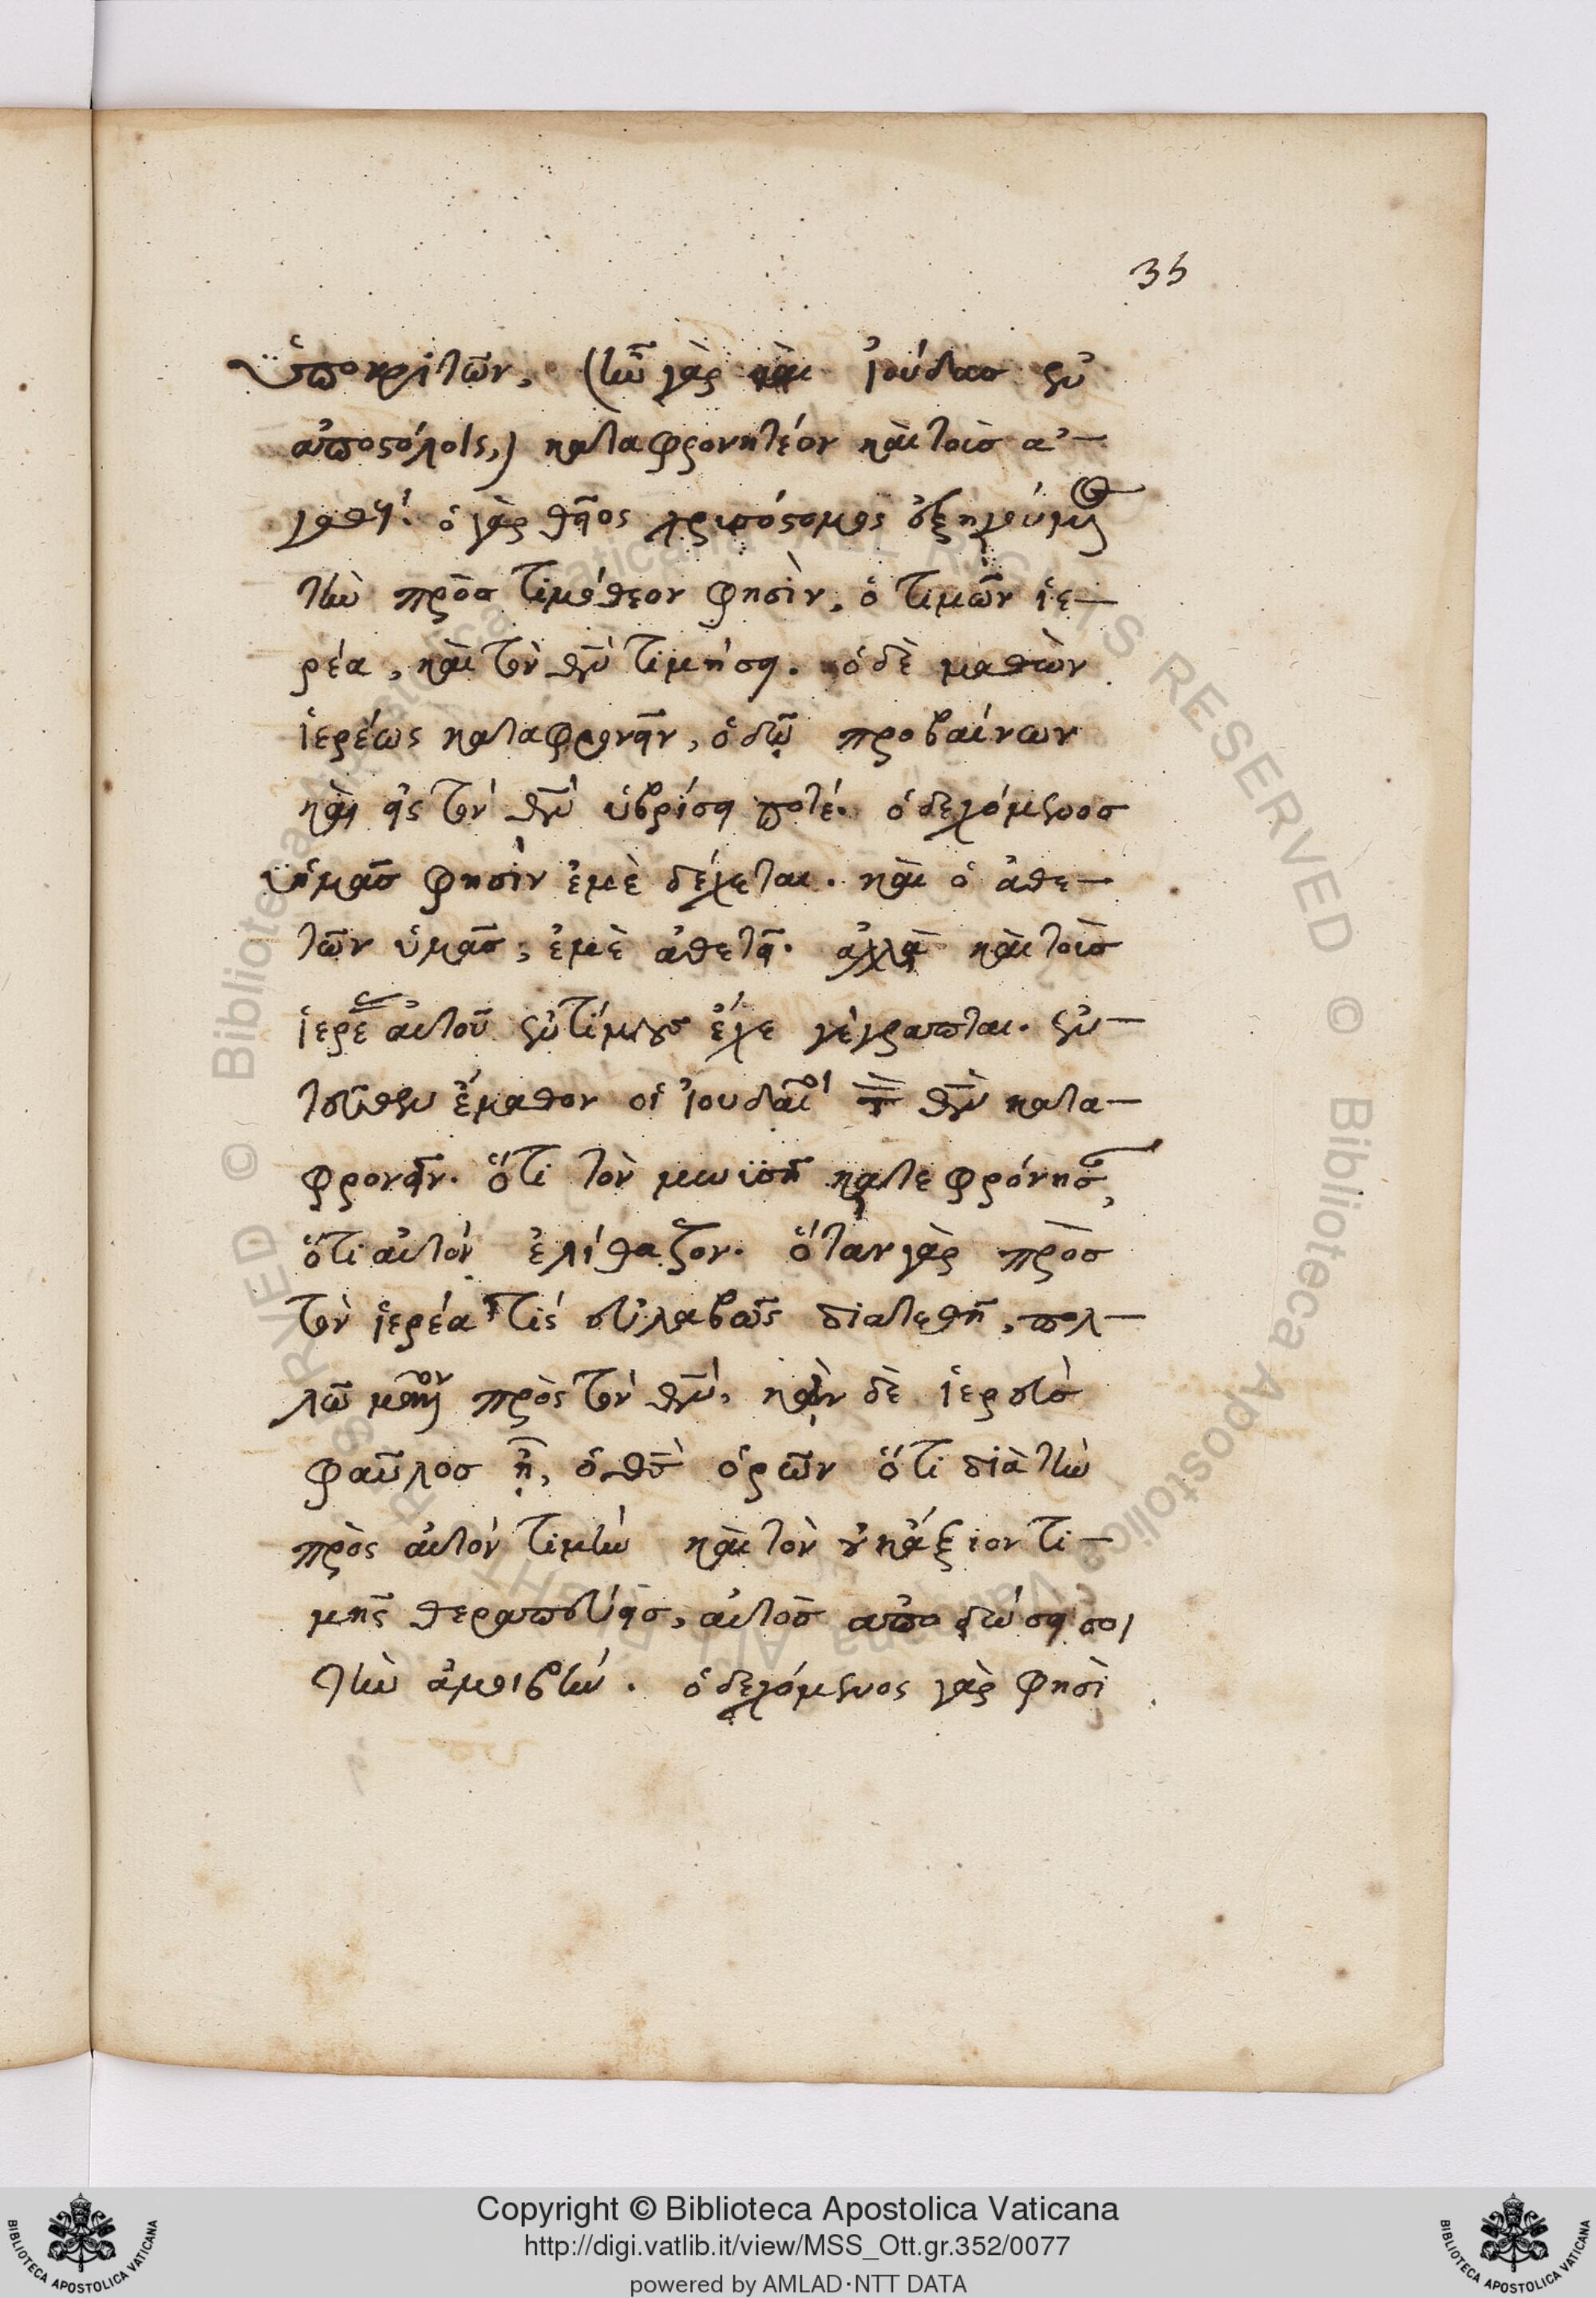 35
ὑποκριτῶν, (ἦν γὰρ καὶ ἰούδας ἐν
ἀποστόλοις,) καταφρονητέον καὶ τοῖς ἀ-
γαθοῖ. ὁ γὰρ θεῖος χρυσόστομος ἐξηγούμενος
τὴν πρὸς τιμόθεον φησὶν, ὁ τιμῶν ἱε-
ρέα, καὶ τὸν θν̅ τιμήσει. ὁ δὲ μαθὼν
ἱερέως καταφρονεῖν, ὁδῷ προβαίνων
καὶ εἰς τὸν θν̅ ὑβρίσει ποτέ. ὁ δεχόμενος
ὑμᾶς φησὶν ἐμὲ δέχεται. καὶ ὁ ἀθε-
τῶν ὑμᾶς, ἐμὲ ἀθετεῖ. ἀλλὰ καὶ τοῖς
ἱερεῖς αὐτοῦ ἐντίμους ἔχε γέγραπται. ἐν-
τεῦθεν ἔμαθον οἱ ἰουδαῖοι τὸν θν̅ κατα-
φρονεῖν. ὅτι τὸν μωϋσῆ κατεφρόνησαν,
ὅτι αὐτὸν ἐλίθαζον. ὅταν γὰρ πρὸς
τὸν ἱερέα τίς εὐλαβῶς διατεθῆ, πολ-
λῶ μᾶλλον πρὸς τὸν θν̅, κἂν δὲ ἱερεὺς
φαῦλος ᾖ, ὁ θς̅ ὁρῶν ὅτι διὰ τὴν
πρὸς αὐτὸν τιμὴν καὶ τὸν οὐκ ἄξιον τι-
μῆς θεραπεύεις, αὐτὸς ἀποδώσει σοι
τὴν ἀμοιβήν. ὁ δεχόμενος γὰρ φησὶ
Copyright © Biblioteca Apostolica Vaticana
http://digi.vatlib.it/view/MSS_Ott.gr.352/0077
powered by AMLAD·NTT DATA